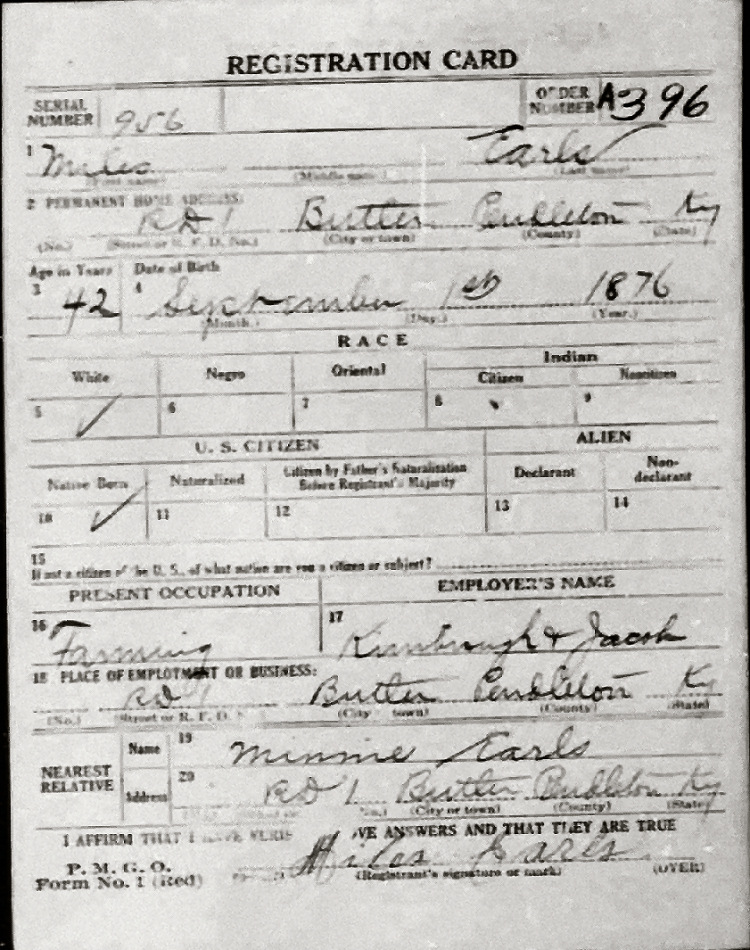 REGISTRATION CARD
SERIAL NUMBER 956 ORDER NUMBER A396
1 Miles Earls
(First name) (Middle name) (Last name)
2 PERMANENT HOME ADDRESS:
RD 1 Butler Pendleton Ky
(No.) (Street or R. F. D. No.) (City or town) (County) (State)
Age in Years Date of Birth
3 42 4 September 1st 1876
(Month.) (Day.) (Year.)
RACE
White Negro Oriental Indian
Citizen Noncitizen
5 ✓ 6 7 8 9
U. S. CITIZEN ALIEN
Native Born Naturalized Citizen by Father's Naturalization Before Registrant's Majority Declarant Non-declarant
10 ✓ 11 12 13 14
15
If not a citizen of the U. S., of what nation are you a citizen or subject?
PRESENT OCCUPATION EMPLOYER'S NAME
16 Farming 17 Kimbrough & Jacob
18 PLACE OF EMPLOYMENT OR BUSINESS:
RD 1 Butler Pendleton Ky
(No.) (Street or R. F. D. (City town) (County) (State)
NEAREST RELATIVE Name 19 Minnie Earls
Address 20 RD 1 Butler Pendleton Ky
(City or town) (County) (State)
I AFFIRM THAT I HAVE VERIF VE ANSWERS AND THAT THEY ARE TRUE
P. M. G. O.
Form No. 1 (Red) Miles Earls
(Registrant's signature or mark) (OVER)